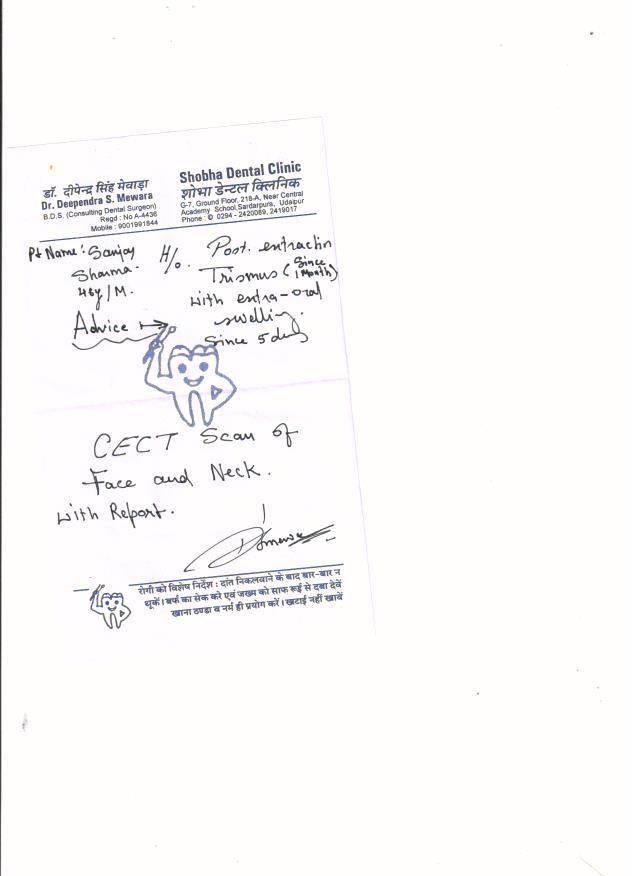 डॉ. दीपेन्द्र सिंह मेवाड़ा
Dr. Deependra S. Mewara
B.D.S. (Consulting Dental Surgeon)
Regd : No A-4436
Mobile : 9001991844
Shobha Dental Clinic
शोभा डेन्टल क्लिनिक
G-7, Ground Floor, 218-A, Near Central
Academy School,Sardarpura, Udaipur
Phone : 0294 - 2420089, 2419017
Pt Name : Sanjay
Sharma.
46y/M.
H/o. Post. extraction
Trismus (Since 1 Month)
with extra-oral
swelling.
Since 5 days
Advice →
CECT Scan of
Face and Neck.
with Report.
रोगी को विशेष निर्देश : दांत निकलवाने के बाद बार-बार न
थूकें। बर्फ का सेक करे एवं जख्म को साफ रूई से दबा देवें
खाना ठण्डा व नर्म ही प्रयोग करें। खटाई नहीं खावें